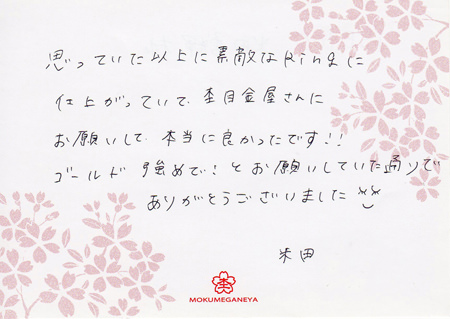 思っていた以上に素敵なRingに
仕上がっていて、杢目金屋さんに
お願いして、本当に良かったです!!
ゴールド強めで!とお願いしていた通りで
ありがとうございました
米田
杢
MOKUMEGANEYA